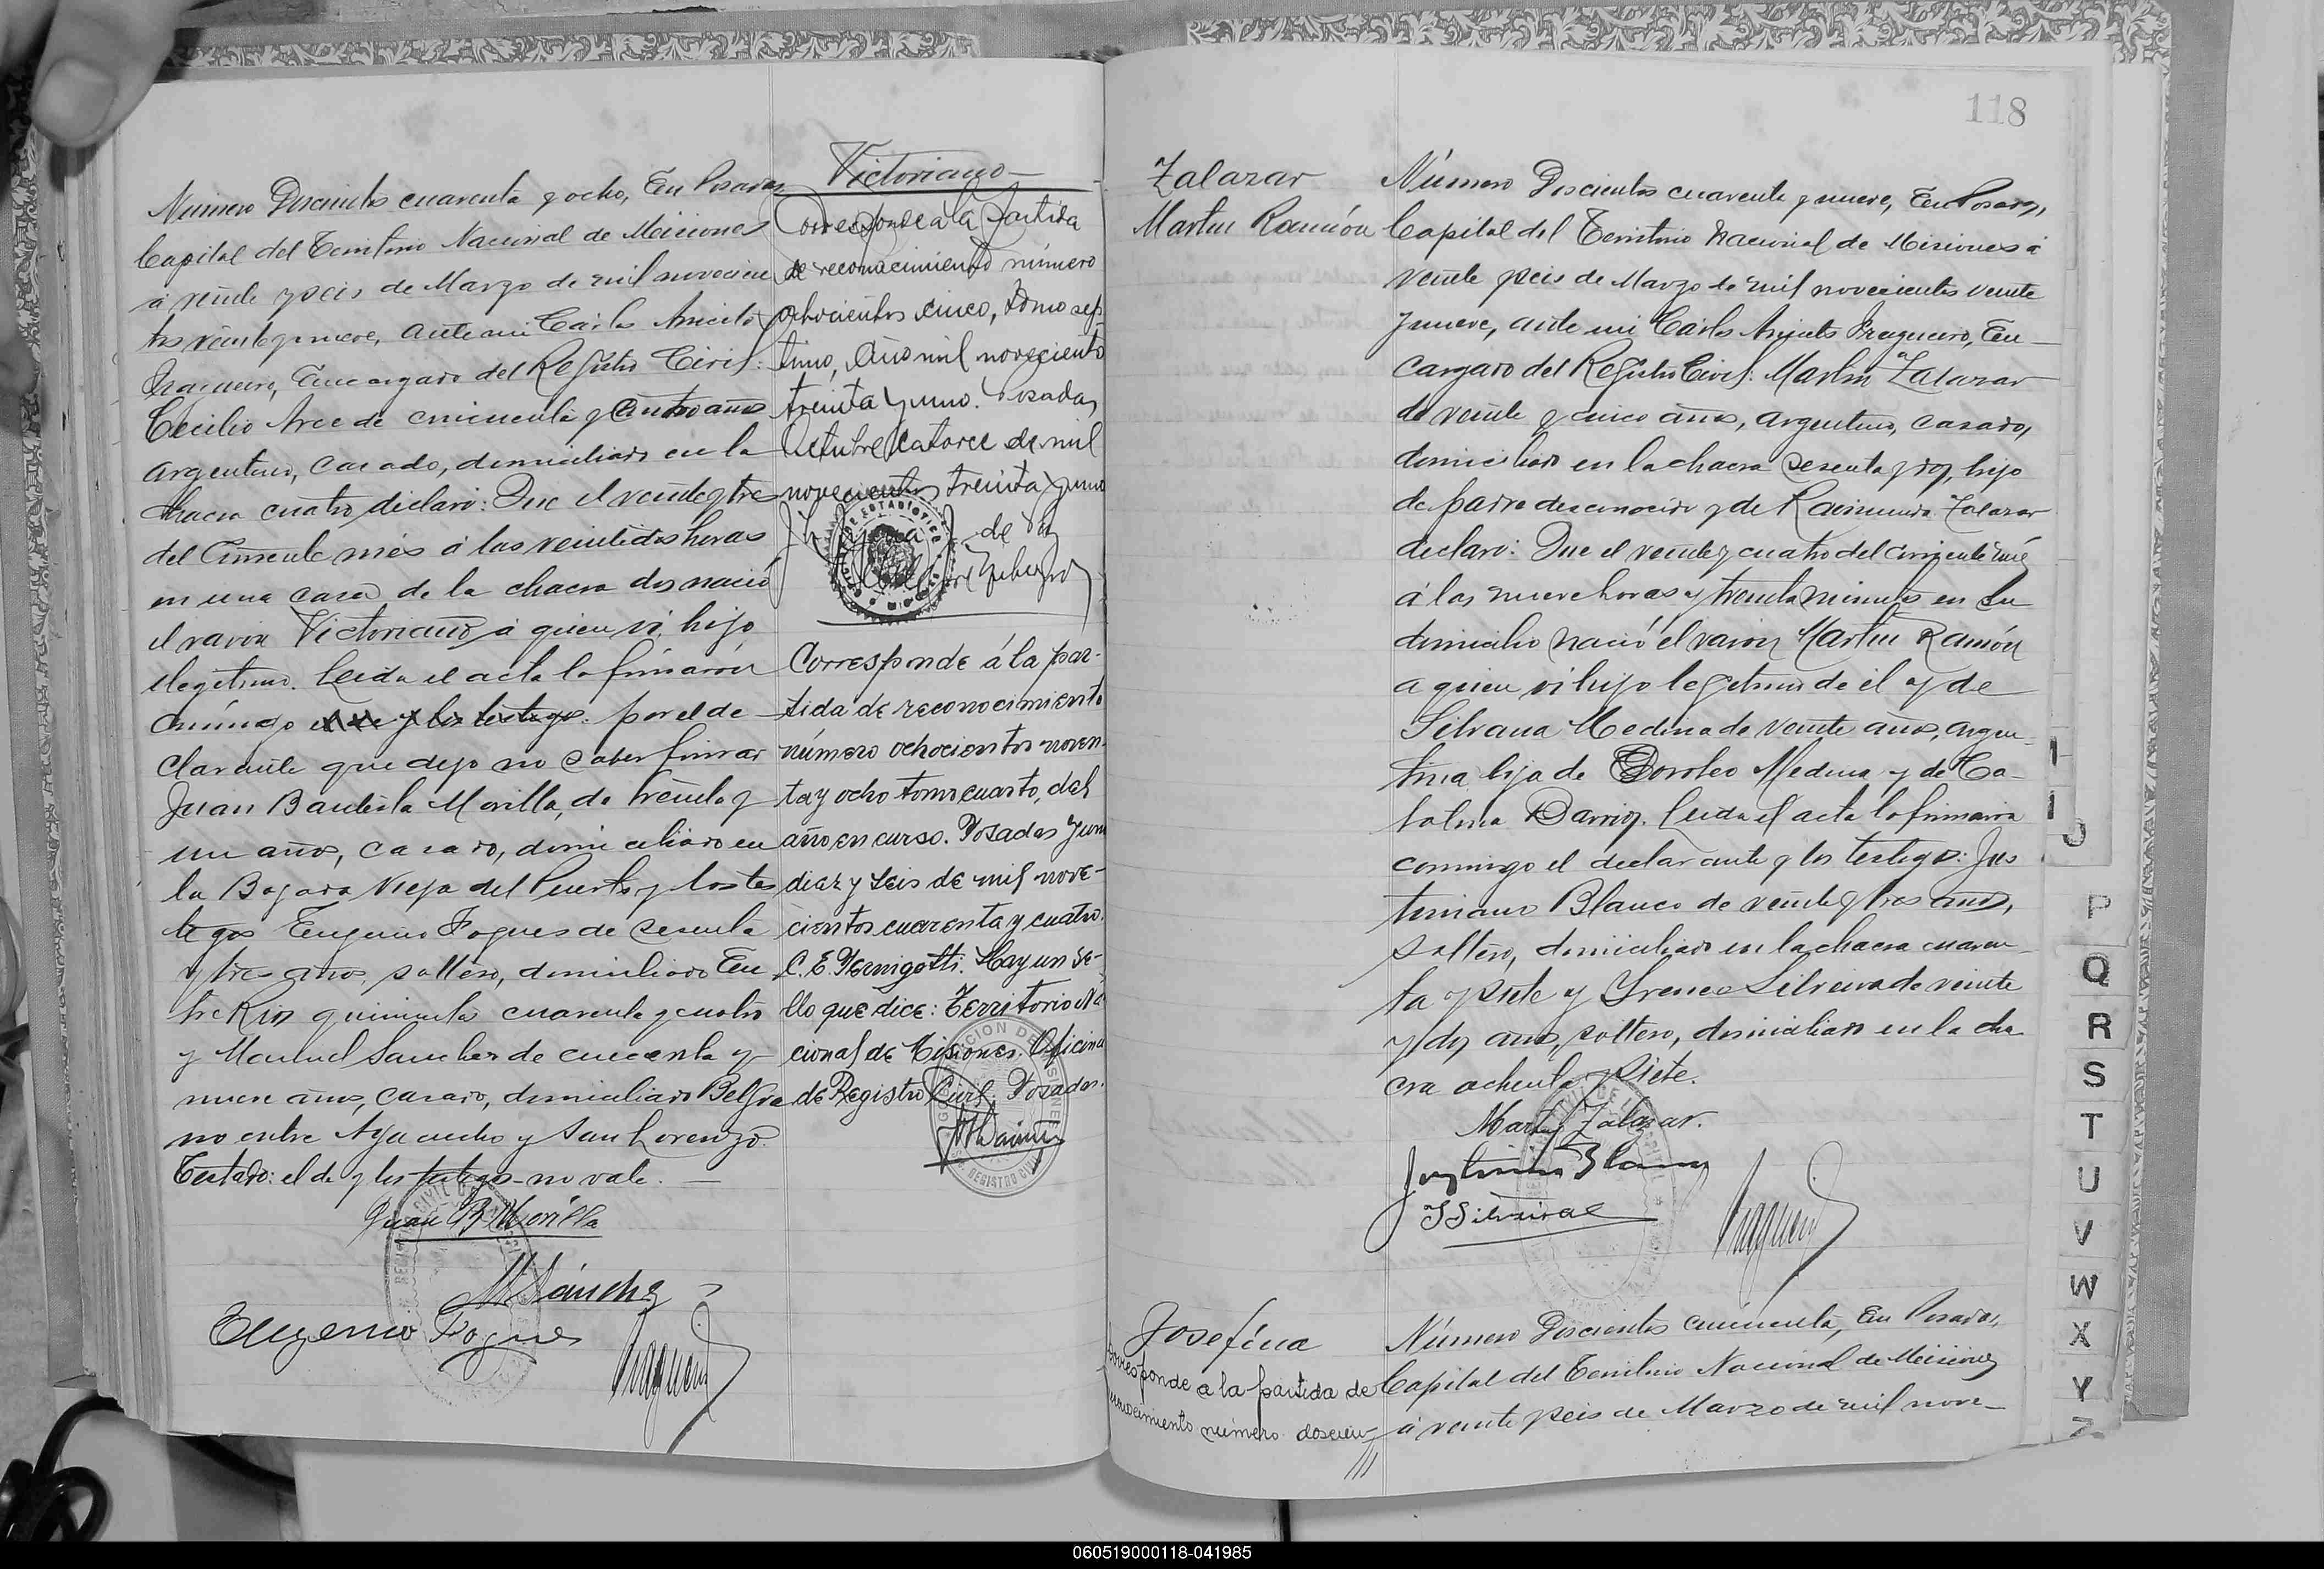 Número Doscientos cuarenta y ocho, En Posadas
Capital del Territorio Nacional de Misiones
á veinte y seis de Marzo de mil novecien
tos veinte y nueve, ante mi Carlos Aniceto
Fragueiro, Encargado del Registro Civil:
Cecilio Arce de cincuenta y cuatro años
argentino, casado, domiciliado en la
chacra cuatro declaró: Que el veinte y tres
del corriente mes á las veintidos horas
en una casa de la chacra dos nació
el varon Victoriano á quien ví, hijo
ilegítimo. Leida el acta la firmaron
conmigo el de y los testigos. por el de
clarante que dejo no saber firmar
Juan Bautista Morilla, de treinta y
un años, casado, domiciliado en
la Bajada Vieja del Puerto y los tes
tigos Eugenio Fogues de sesenta
y tres años, soltero, domiciliado En
tre Rios quinientos cuarenta y cuatro
y Manuel Sanchez de cincuenta y
nueve años, casado, domiciliado Belgra
no entre Ayacucho y San Lorenzo.
Testado: el de y los testigos - no vale. —
Juan B. Morilla
M Sánchez
Eugenio Fogues
Victoriano
Corresponde a la partida
de reconocimiento número
ochocientos cinco, tomo sep
timo, Año mil novecientos
treinta y uno. Posadas,
Octubre catorce de mil
novecientos treinta y uno
Corresponde á la par-
tida de reconocimiento
número ochocientos noven-
ta y ocho tomo cuarto, del
año en curso. Posadas Junio
diez y seis de mil nove-
cientos cuarenta y cuatro.
C. E. Pernigotti. Hay un se-
llo que dice: Territorio Na
cional de Misiones. Oficina
de Registro Civil. Posadas.
118
Zalazar
Martin Ramón
Número Doscientos cuarenta y nueve, En Posadas,
Capital del Territorio Nacional de Misiones á
veinte y seis de Marzo de mil novecientos veinte
y nueve, ante mi Carlos Aniceto Fragueiro, En-
cargado del Registro Civil: Martin Zalazar
de veinte y cinco años, argentino, casado,
domiciliado en la chacra sesenta y dos, hijo
de padre desconocido y de Raimunda Zalazar
declaró: Que el veinte y cuatro del corriente mes
á las nueve horas y treinta minutos en su
domicilio nació el varon Martin Ramón
a quien ví hijo legítimo de el y de
Silvana Medina de veinte años, argen-
tina hija de Doroteo Medina y de Ca-
talina Barrios. Leida el acta la firmaron
conmigo el declarante y los testigos: Jus
tiniano Blanco de veinte y tres años,
soltero, domiciliado en la chacra cuaren-
ta y siete y Ireneo Silveira de veinte
y dos años, soltero, domiciliado en la cha
cra ochenta y siete.
Martin Zalazar.
Justiniano Blanco
I Silveira
Josefina
Corresponde á la partida de
reconocimiento número doscien-
Número Doscientos cincuenta, En Posadas,
Capital del Territorio Nacional de Misiones
á veinte y seis de Marzo de mil nove-
P
Q
R
S
T
U
V
W
X
Y
Z
060519000118-041985